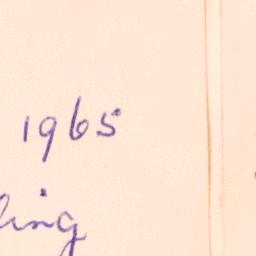 1965
ling